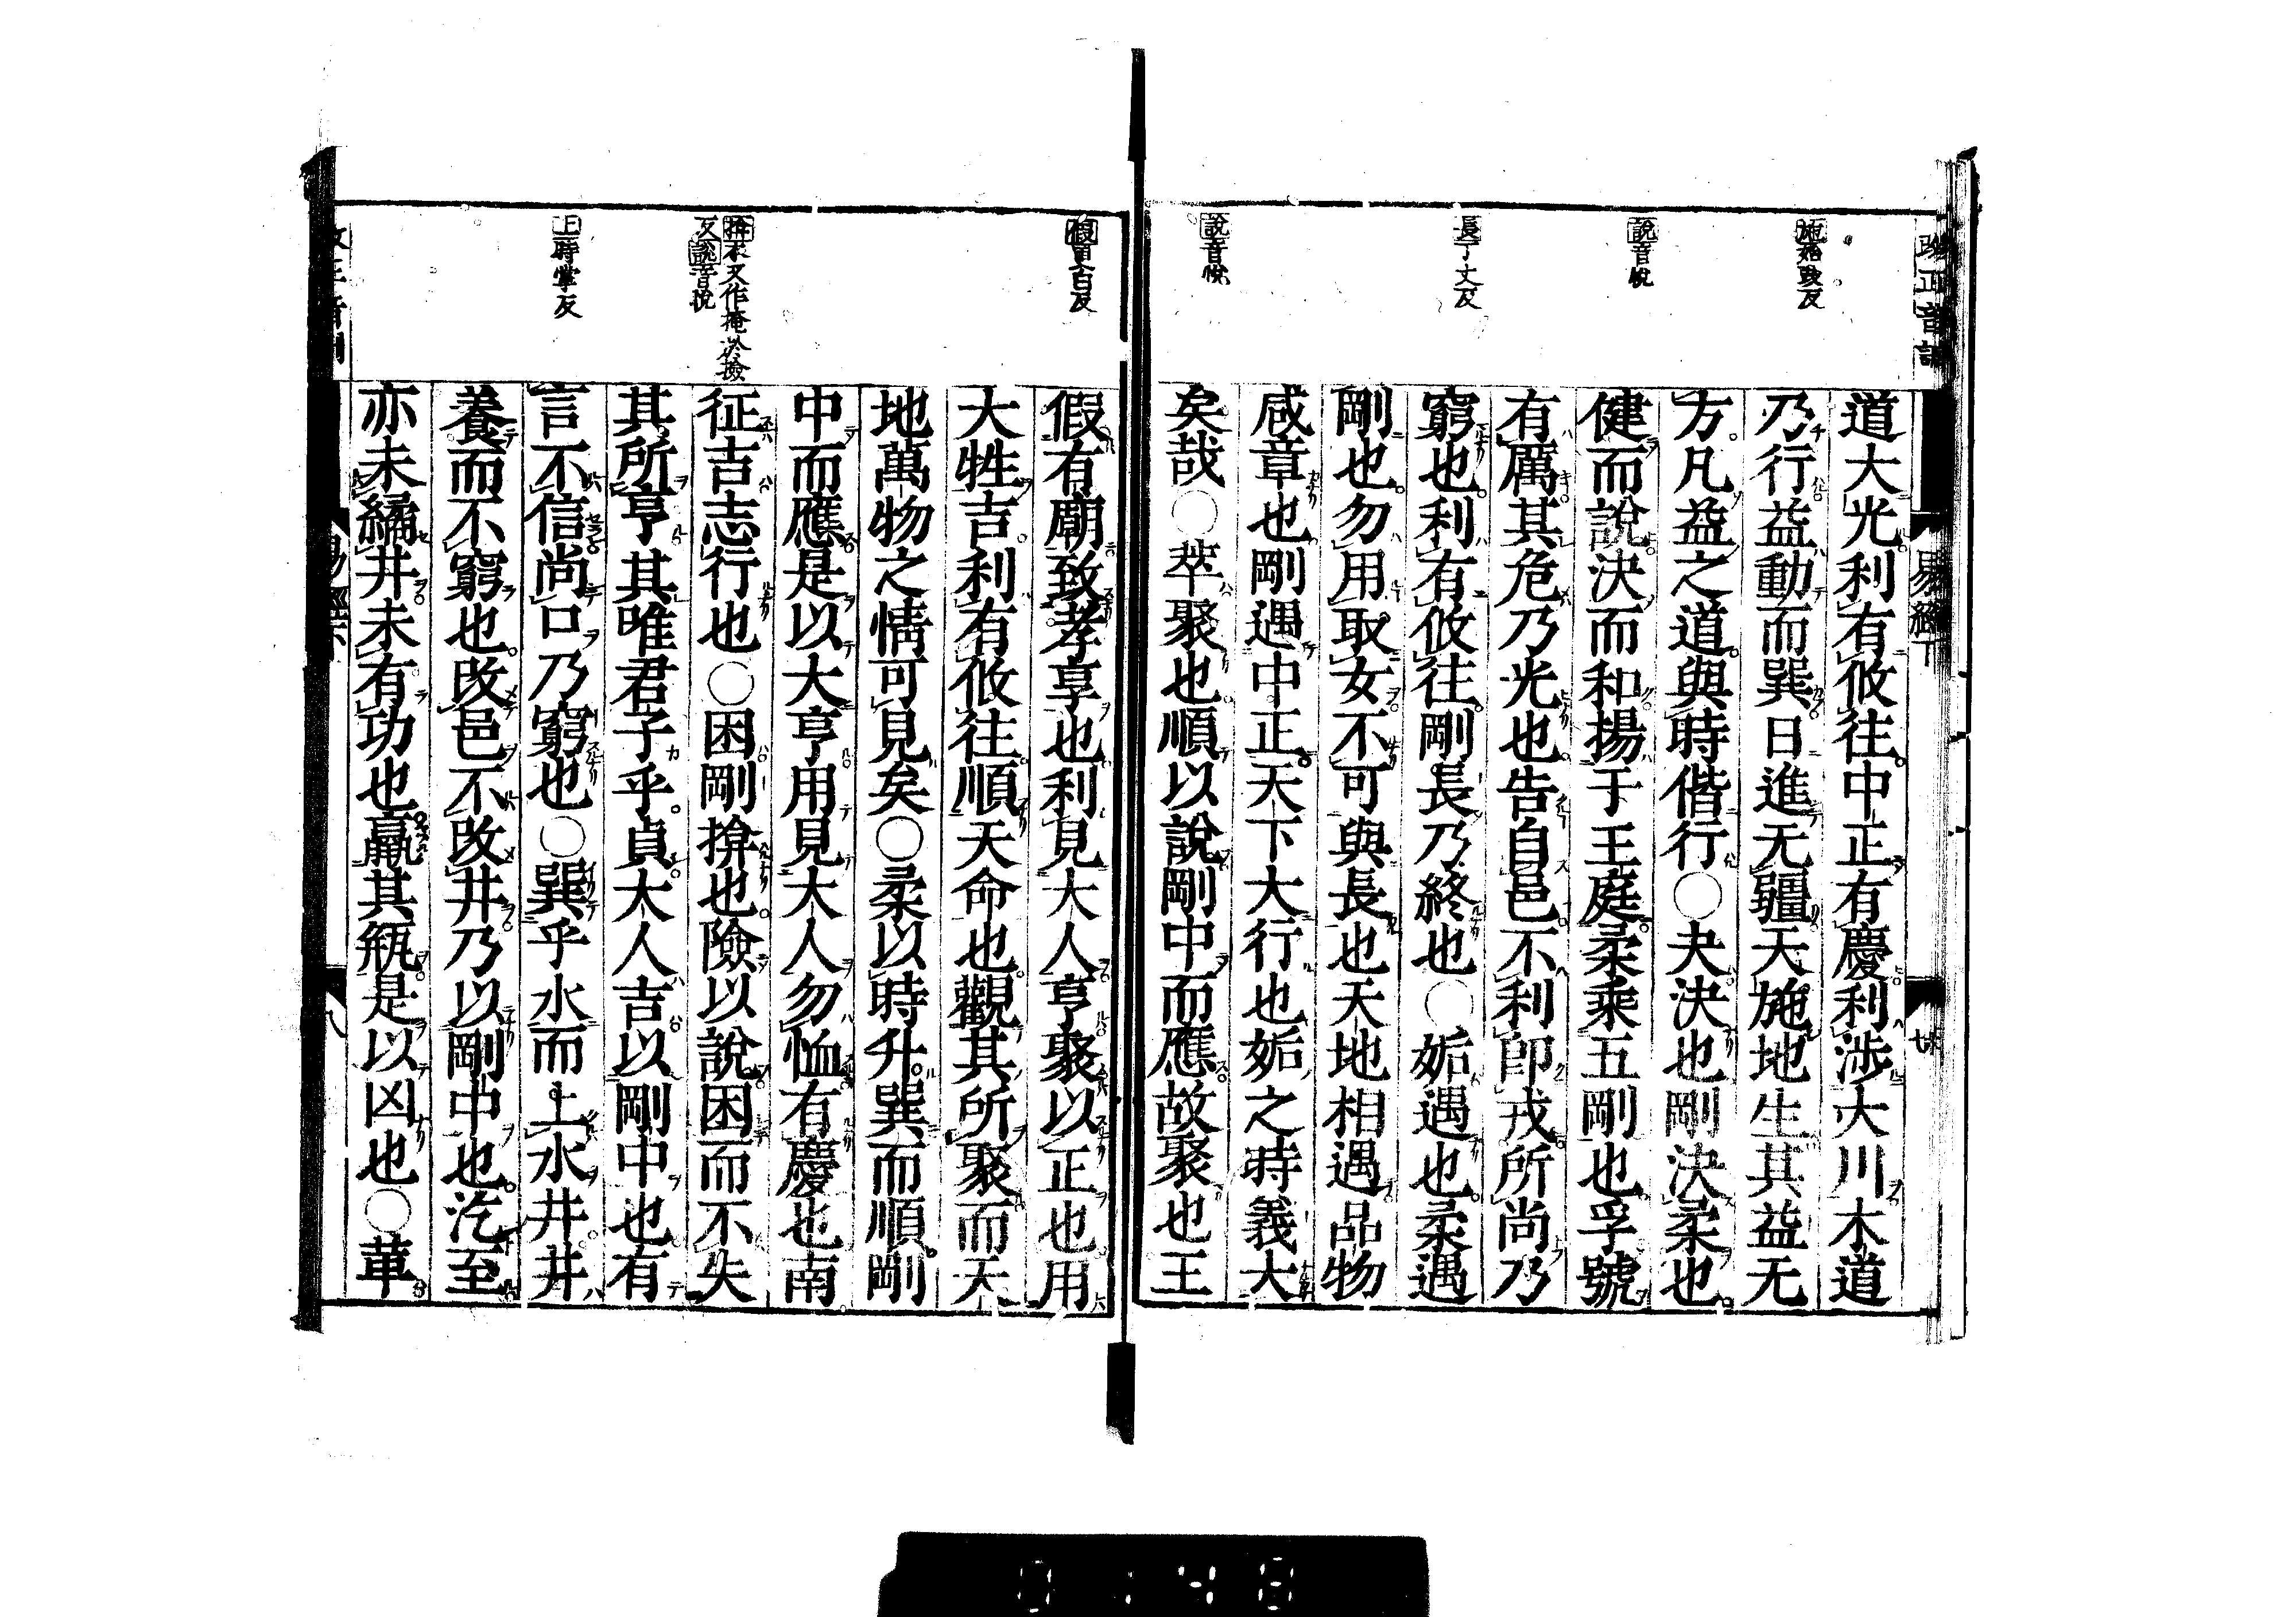 改正音訓
施始豉反
說音悅
長丁丈反
說音悅
易經下
道大光利有攸往中正有慶利涉大川木道
乃行益動而巽日進无疆天施地生其益无
方凡益之道與時偕行○夬決也剛決柔也
健而說決而和揚于王庭柔乘五剛也孚號
有厲其危乃光也告自邑不利卽戎所尚乃
窮也利有攸往剛長乃終也○姤遇也柔遇
剛也勿用取女不可與長也天地相遇品物
咸章也剛遇中正天下大行也姤之時義大
矣哉○萃聚也順以說剛中而應故聚也王
假更白反
揜本又作掩於撿
反說音悅
上時掌反
假有廟致孝享也利見大人亨聚以正也用
大牲吉利有攸往順天命也觀其所聚而天
地萬物之情可見矣○柔以時升巽而順剛
中而應是以大亨用見大人勿恤有慶也南
征吉志行也○困剛揜也險以說困而不失
其所亨其唯君子乎貞大人吉以剛中也有
言不信尚口乃窮也○巽乎水而上水井井
養而不窮也改邑不改井乃以剛中也汔至
亦未繘井未有功也羸其瓶是以凶也○革
易經下
八
0148